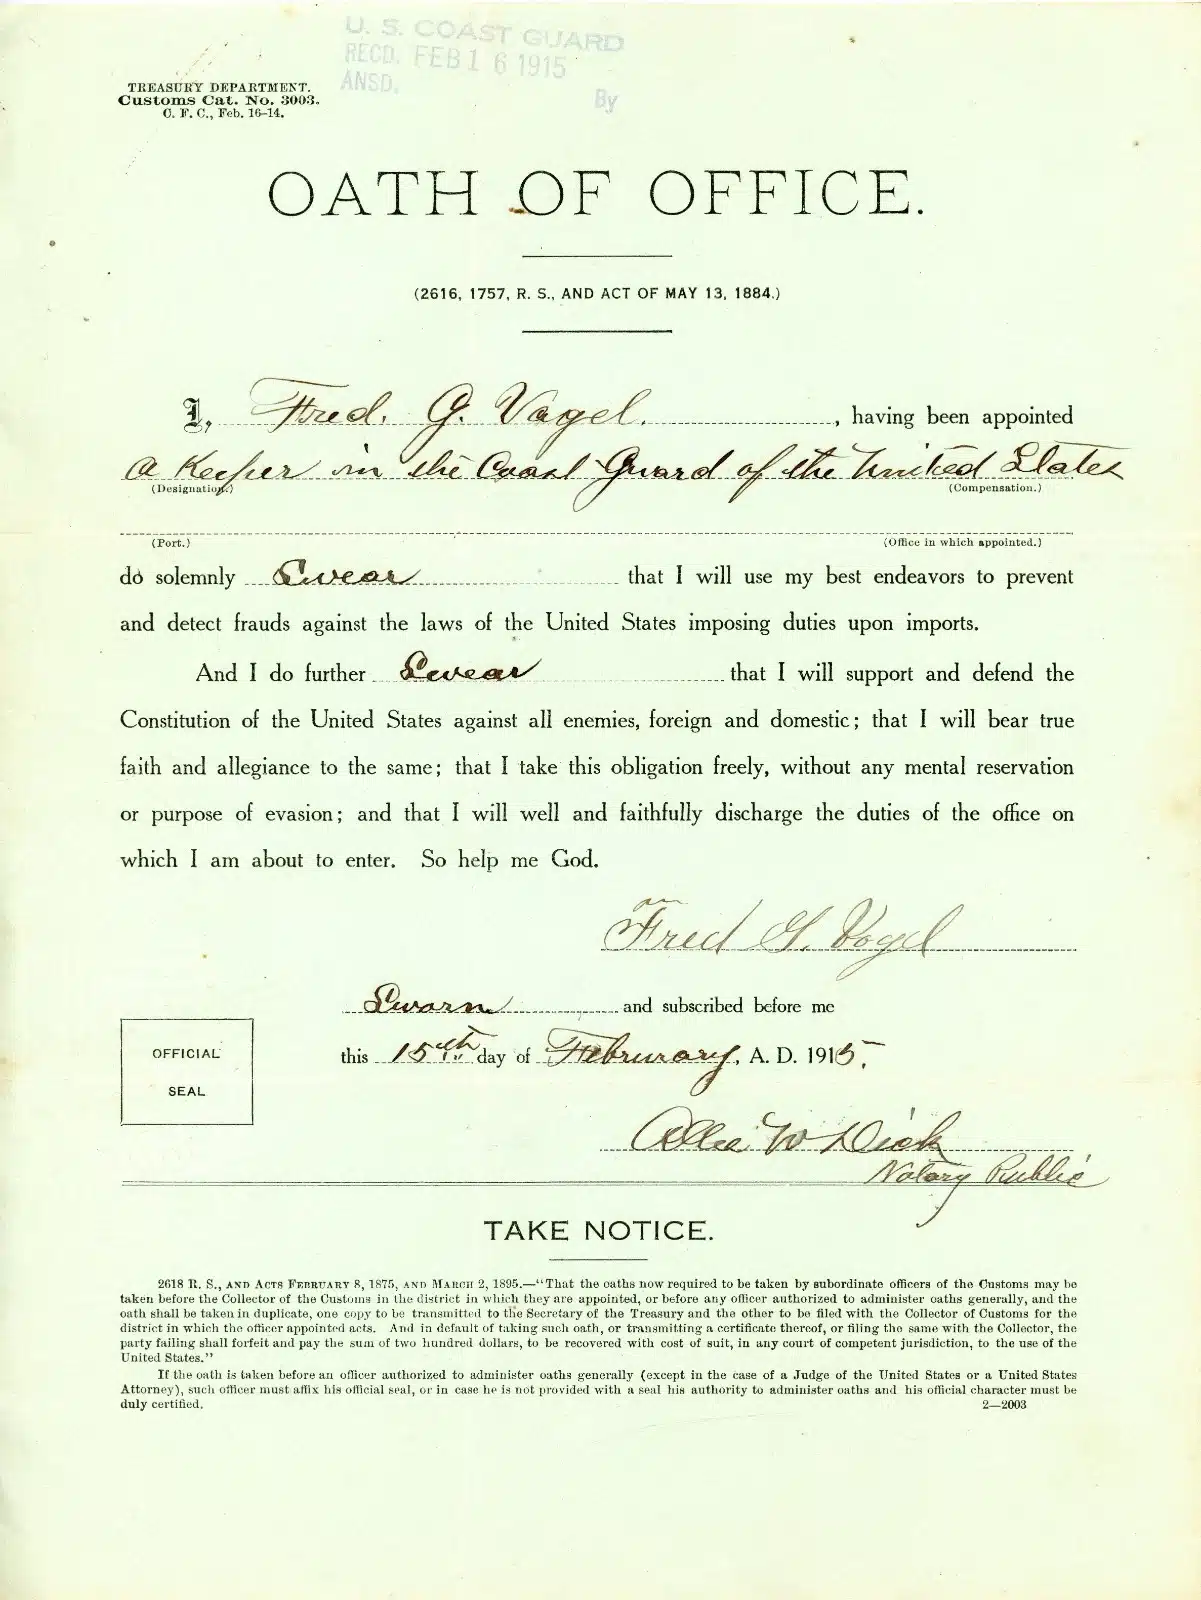 U. S. COAST GUARD
RECD. FEB 16 1915
ANSD. By
TREASURY DEPARTMENT.
Customs Cat. No. 3003.
C. F. C., Feb. 16–14.
OATH OF OFFICE.
(2616, 1757, R. S., AND ACT OF MAY 13, 1884.)
I, Fred. G. Vogel. , having been appointed
a Keeper in the Coast Guard of the United States
(Designation.) (Compensation.)
(Port.) (Office in which appointed.)
do solemnly Swear that I will use my best endeavors to prevent
and detect frauds against the laws of the United States imposing duties upon imports.
And I do further Swear that I will support and defend the
Constitution of the United States against all enemies, foreign and domestic; that I will bear true
faith and allegiance to the same; that I take this obligation freely, without any mental reservation
or purpose of evasion; and that I will well and faithfully discharge the duties of the office on
which I am about to enter. So help me God.
Fred G. Vogel
Sworn and subscribed before me
OFFICIAL
SEAL
this 15th day of Februrary, A. D. 1915.
W Dick
Notary Public
TAKE NOTICE.
2618 R. S., AND ACTS FEBRUARY 8, 1875, AND MARCH 2, 1895.—"That the oaths now required to be taken by subordinate officers of the Customs may be
taken before the Collector of the Customs in the district in which they are appointed, or before any officer authorized to administer oaths generally, and the
oath shall be taken in duplicate, one copy to be transmitted to the Secretary of the Treasury and the other to be filed with the Collector of Customs for the
district in which the officer appointed acts. And in default of taking such oath, or transmitting a certificate thereof, or filing the same with the Collector, the
party failing shall forfeit and pay the sum of two hundred dollars, to be recovered with cost of suit, in any court of competent jurisdiction, to the use of the
United States."
If the oath is taken before an officer authorized to administer oaths generally (except in the case of a Judge of the United States or a United States
Attorney), such officer must affix his official seal, or in case he is not provided with a seal his authority to administer oaths and his official character must be
duly certified. 2—2003